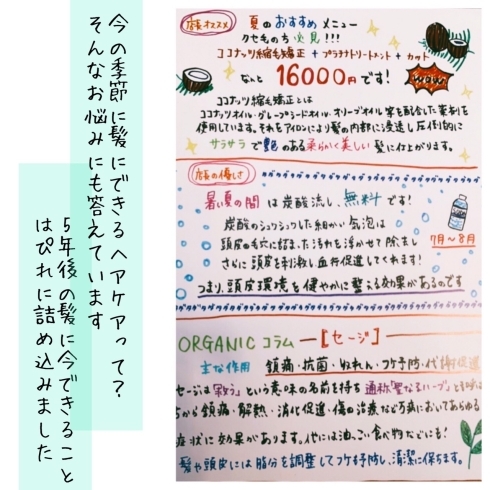 今の季節に髪にできるヘアケアって？
そんなお悩みにも答えています
5年後の髪に今できること
はぴれに詰め込みました
店長オススメ
夏のおすすめメニュー
クセもち必見!!!
ココナッツ縮毛矯正+プラチナトリートメント+カット
なんと16000円です!
WOW
ココナッツ縮毛矯正とは
ココナッツオイル・グレープシードオイル・オリーブオイル等を配合した薬剤を
使用しています。それをアイロンにより髪の内部に浸透し圧倒的に
サラサラで艶のある柔らかく美しい髪に仕上がります。
店長の優しさ
暑い夏の間は炭酸流し、無料です!
7月〜8月
炭酸のシュワシュワした細かい気泡は
頭皮の毛穴に詰まった汚れを浮かせて除去し
さらに頭皮を刺激し血行促進してくれます!
つまり、頭皮環境を健やかに整える効果があるのです
ORGANICコラム ―[セージ]―
主な作用 鎮痛・抗菌・ぬれん・フケ予防・代謝促進
セージは「救う」という意味の名前を持ち通称「聖なるハーブ」と
から鎮痛・解熱・消化促進・傷の治療など万病においてあらゆる
症状に効果があります。他には油っこい食べ物などにも!
髪や頭皮には脂分を調整してフケを予防し、清潔に保ちます。